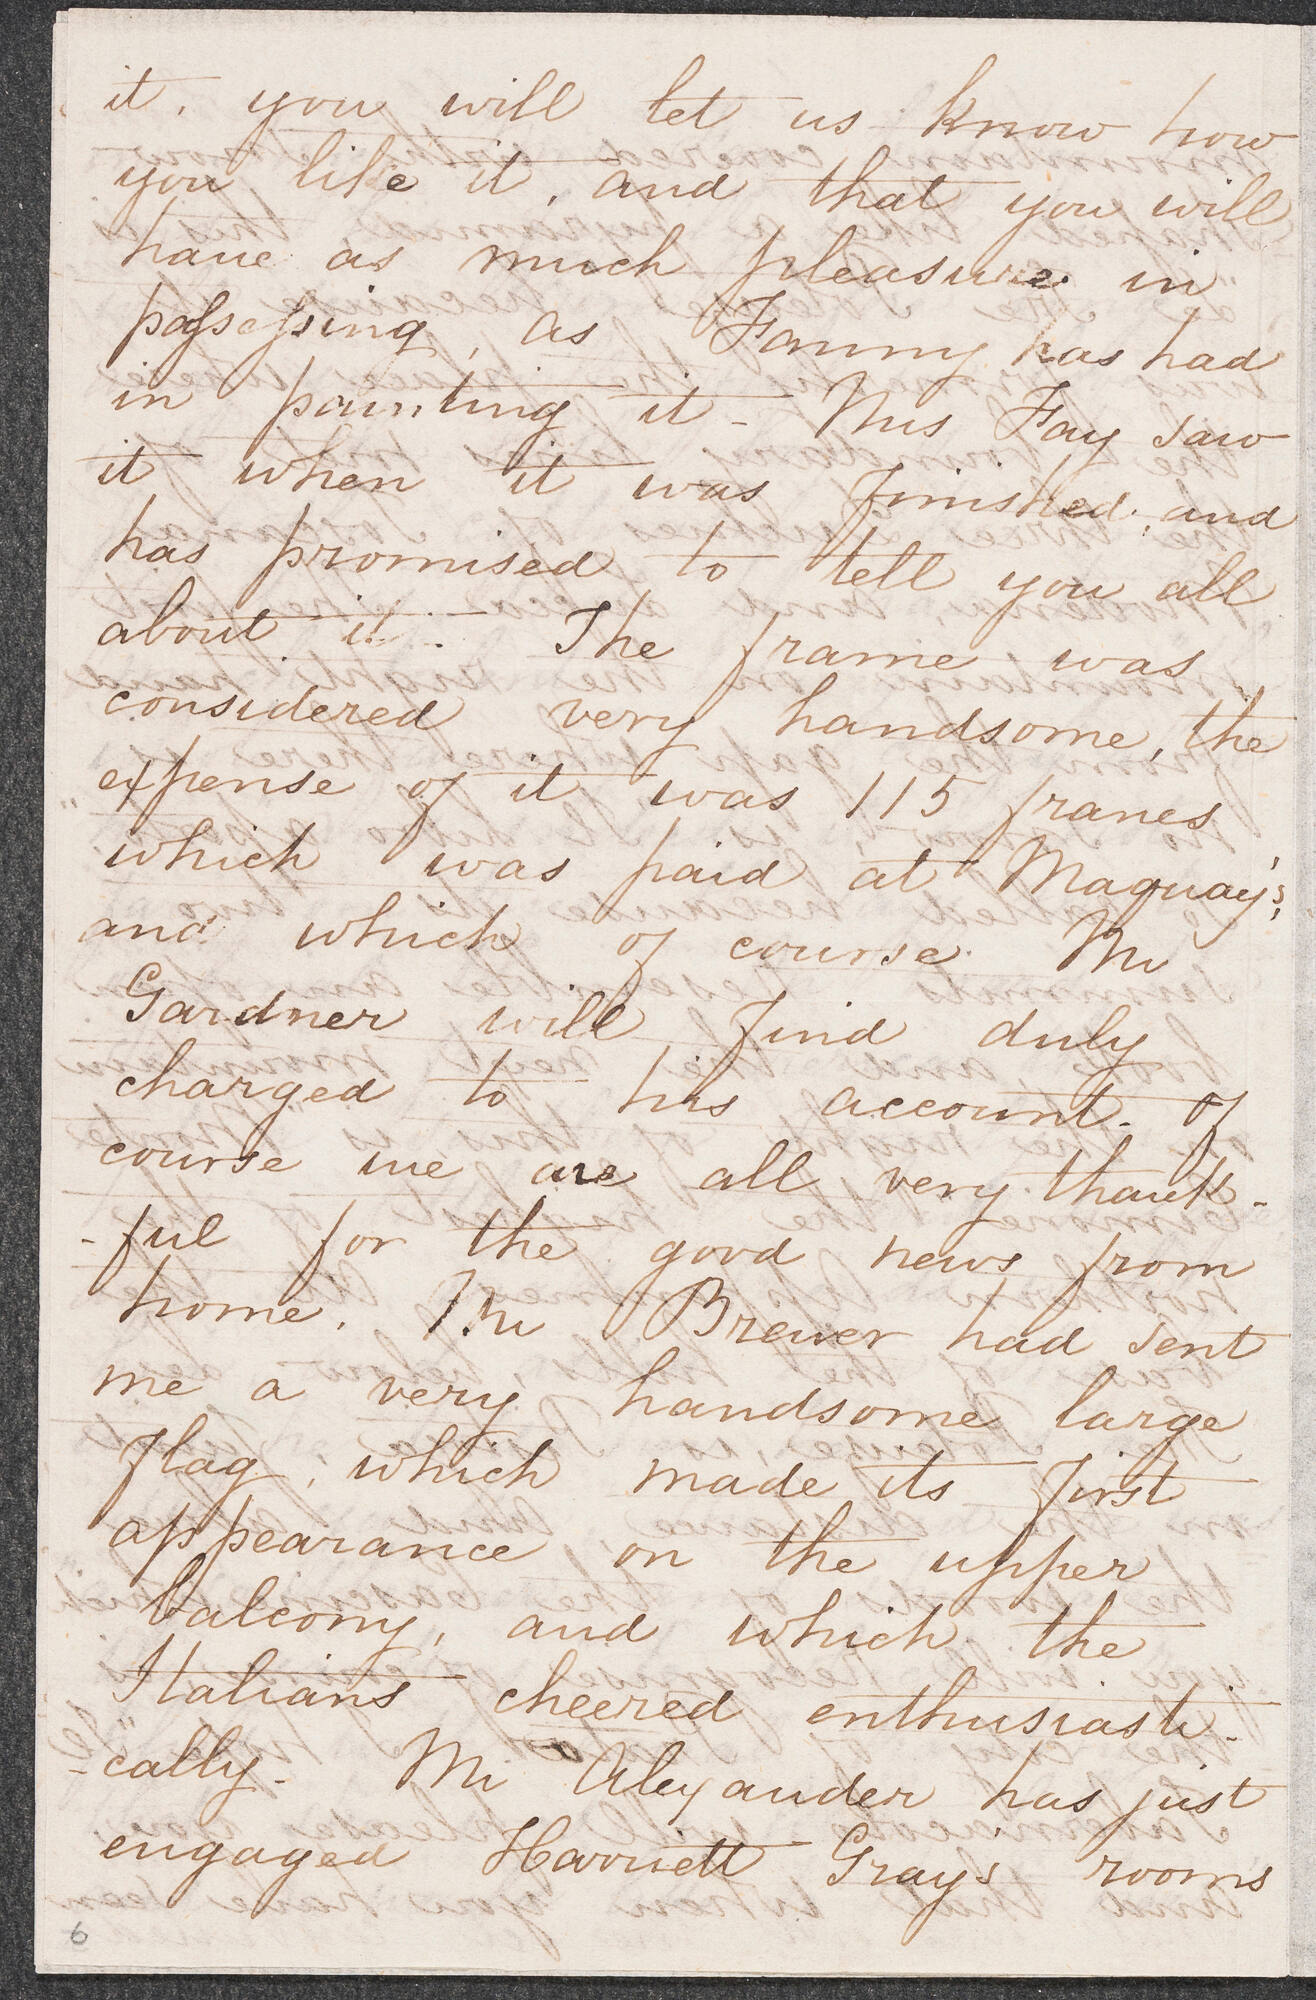 it. you will let us know how
you like it, and that you will
have as much pleasure in
possessing, as Fanny has had
in painting it - Miss Fay saw
it when it was finished, and
has promised to tell you all
about it - The frame was
considered very handsome, the
expense of it was 115 francs
which was paid at Maquay's,
and which of course Mr
Gardner will find duly
charged to his account. Of
course we are all very thank-
-ful for the good news from
home. Mr Brewer had sent
me a very handsome large
Flag, which made its first
appearance on the upper
balcony, and which the
Italians cheered enthusiasti-
-cally - Mr Alexander has just
engaged Harriett Gray's rooms
6